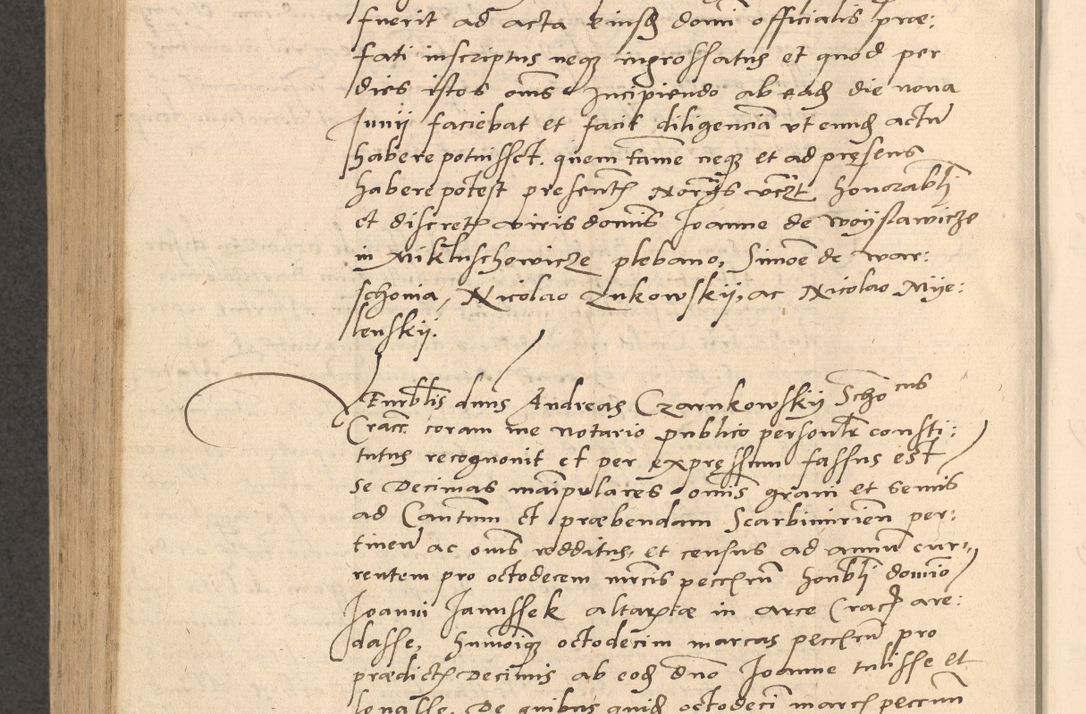 fuerit ad acta eiusd domi officialis præ:
fati inscriptus neq ingrossatus et quod per
dies istos oms Incipiendo ab ead die nona
Junii faciebat et facit diligenciã vt eund actũ
habere potuisset. quem tame neq et ad pręsens
habere potest presentt honorabli
et discretę viris domis Joanne de Woyslawicze
in Mikluschowicze plebano, Simoe de War:
schouia, Nicolao Zukowskij, ac Nicolao Mye:
lenskij.
Andreas Czarnkowskij Scho cus
Cracc coram me notario publico personlr consti:
tutus recognouit et per expressum fassus est
se Decimas manipulares omis grani et semis
ad Cantum et præbendam Scarbimirien per:
tinen ac oms redditus, et census ad annu cur:
rentem pro octodecem mrcis peccrũ honbli domio
Joanni Janussek altarstæ in arce Cracc are:
dasse, octodecim marcas peccrũ pro
prædict Decimis ab eod dno Joanne tulisse et
leuasse. De quibus quid octodeci marc peccun